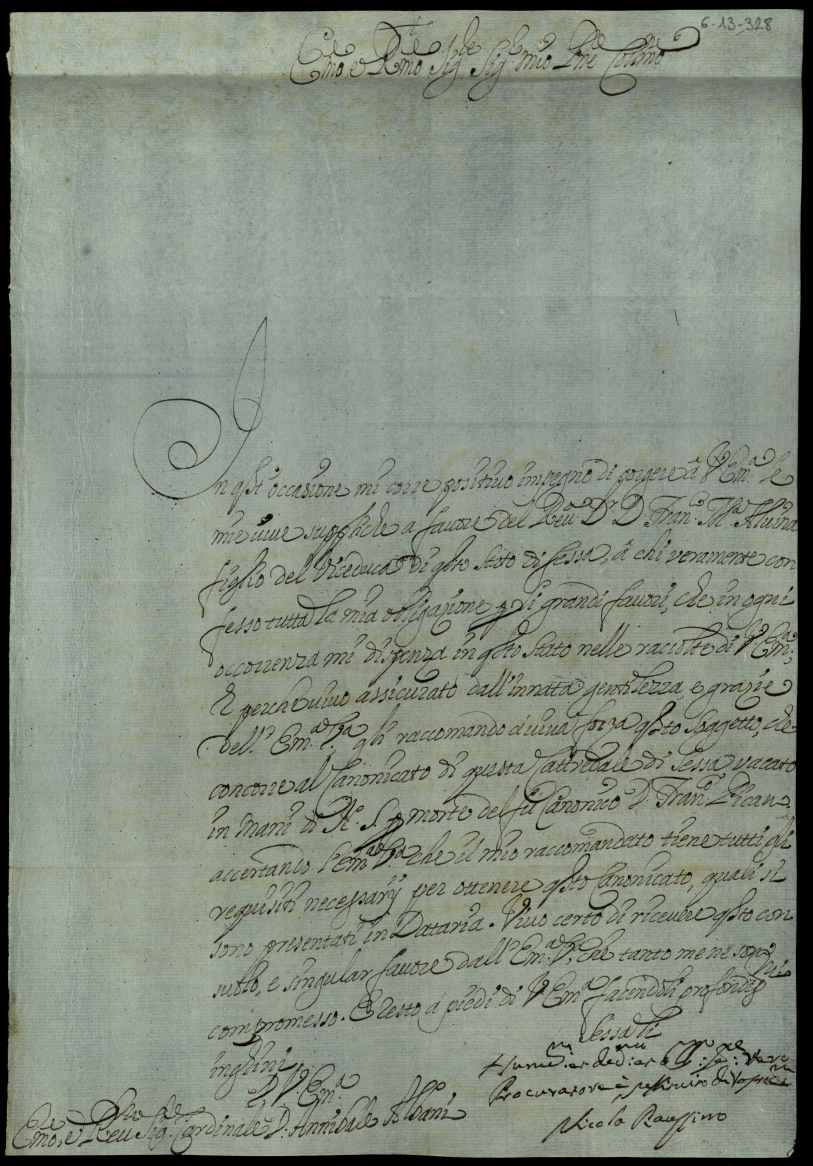 6-13-328
Emo, e Rmo Sig. Sig. mio Pne Colmo
In qsta occasione mi corre positivo impegno di porgere à V. Ema. le
mie vive suppliche a favore del Reu. Dr. D. Fran.
figlio del Viceduca di qsto Stato di Sessa, à chi veramente con
fesso tutta la mia obligazione p i grandi favori, che in ogni
occorrenza mi dispenza in qsto stato nelle raccolte di V. Ema.
E perche vivo assicurato dall'innata gentilezza, e grazie
dell' Ema. Va. gli raccomando à viva forza qsto Soggetto, che
concorre al Canonicato di questa Cattedrale di Sessa vacato
in mani di N. S. p morte del fù Canonico D. Fran.
accertando l'Ema. Va. che il mio raccomandato tiene tutti gli
requisiti necessarij per ottenere qsto Canonicato, quali si
sono presentati in Dataria. Vivo certo di ricevere qsto con
suolo, e singular favore dall' Ema. Va. che tanto me ne sono
compromesso. E resto à piedi di V. Ema. facendoli profondis
inchini
Sessa li
D. V. Ema.
Procuratore
Nicola
Emo, e Reu Sig. Cardinale D. Annibale Albani